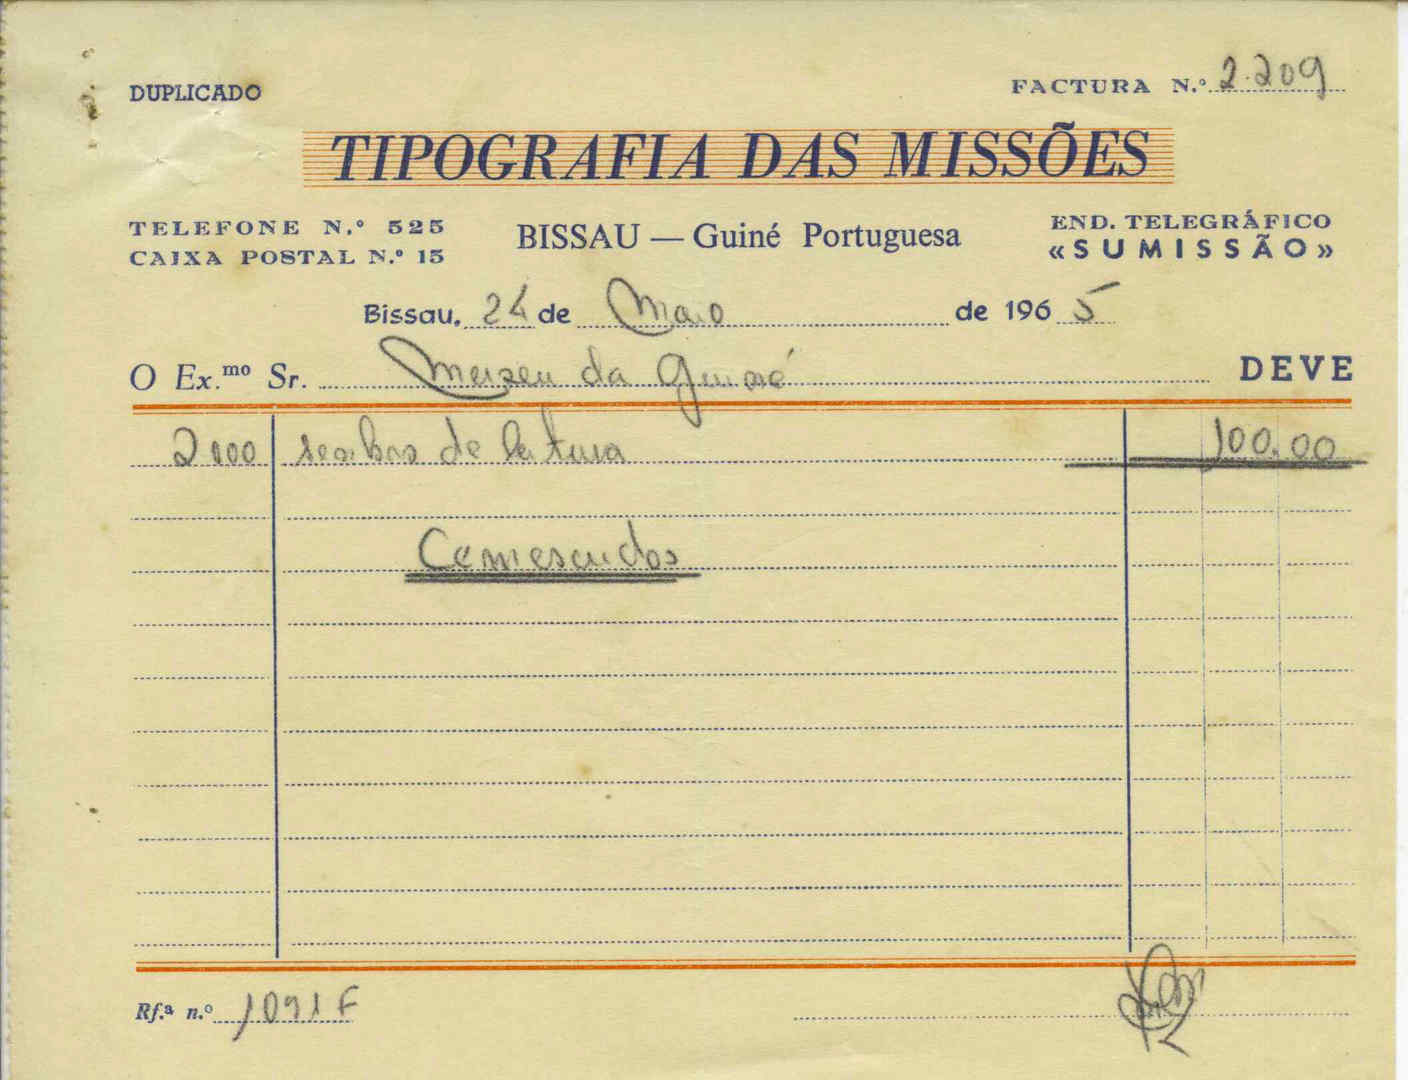 DUPLICADO
FACTURA N.º 2.209
TIPOGRAFIA DAS MISSÕES
TELEFONE N.º 525
CAIXA POSTAL N.º 15
BISSAU — Guiné Portuguesa
END. TELEGRÁFICO
«SUMISSÃO»
Bissau, 24 de Maio de 1965
O Ex.mo Sr. Museu da Guiné DEVE
2000 senhas de leitura 100.00
Cem escudos
Rf.ª n.º 1091 F